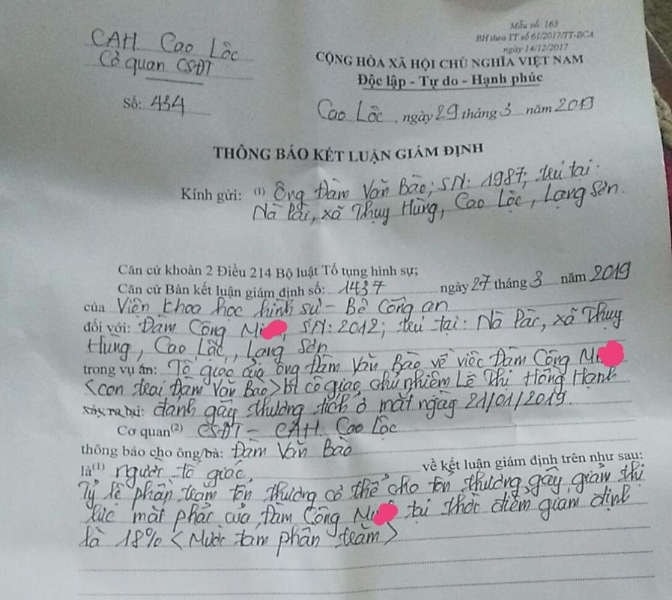 Mẫu số: 163
BH theo TT số 61/2017/TT-BCA
ngày 14/12/2017
CAH Cao Lộc
Cơ quan CSĐT
CỘNG HÒA XÃ HỘI CHỦ NGHĨA VIỆT NAM
Độc lập - Tự do - Hạnh phúc
Số: 434
Cao Lộc, ngày 29 tháng 3 năm 2019
THÔNG BÁO KẾT LUẬN GIÁM ĐỊNH
Kính gửi: (1) Ông Đàm Văn Bảo; SN: 1987; trú tại:
Nà Pài, xã Thụy Hùng, Cao Lộc, Lạng Sơn.
Căn cứ khoản 2 Điều 214 Bộ luật Tố tụng hình sự;
Căn cứ Bản kết luận giám định số: 1437 ngày 27 tháng 3 năm 2019
của Viện khoa học hình sự - Bộ Công an
đối với: Đàm Công SN: 2012; trú tại: Nà Pài, xã Thụy
Hùng, Cao Lộc, Lạng Sơn
trong vụ án: Tố giác của ông Đàm Văn Bảo về việc Đàm Công
<con trai Đàm Văn Bảo> bị cô giáo chủ nhiệm Lê Thị Hồng Hạnh
xảy ra tại: đánh gây thương tích ở mắt ngày 21/01/2019.
Cơ quan (2) CSĐT - CAH Cao Lộc
thông báo cho ông/bà: Đàm Văn Bảo
là (1) người tố giác, về kết luận giám định trên như sau:
Tỷ lệ phần trăm tổn thương cơ thể cho tổn thương gây giảm thị
lực mắt phải của Đàm Công tại thời điểm giám định
là 18% <Mười tám phần trăm>